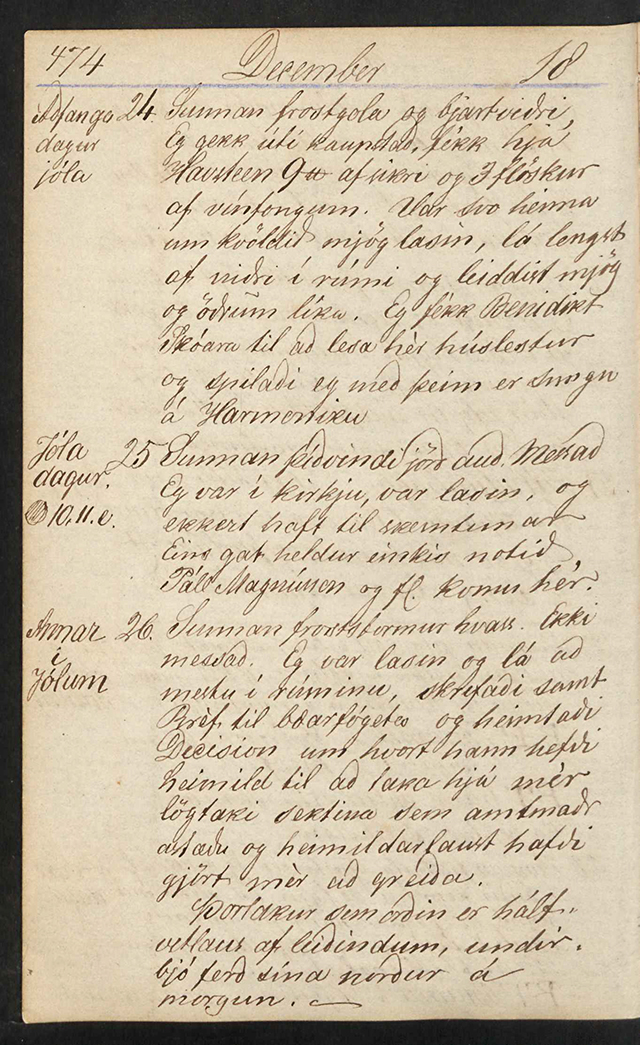 474 December 18
Adfanga 24. Sunnan frostgola og bjartvidri,
dagur Eg gekk úti kaupstad, fékk hjá
jóla Havsteen 9 af sikri og 3 flöskur
af vinföngum. Var svo heima
um kvöldid mjög lasin, lá lengst
af vidri í rúmi og leiddist mjög
og ödrum líka. Eg fékk Benidikt
Skóara til ad lesa hér húslestur
og spiladi eg med þeim er sungu
á Harmoniku
Jóla 25 Sunnan þídvindi jörd aud. Messad
dagur. Eg var í kirkju, var lasin, og
10.11.e. ekkert haft til skemtunar
Eins gat heldur einkis notid
Páll Magnússon og fl. komu hér.
Annar 26. Sunnan froststormur hvass. Ekki
í messad. Eg var lasin og lá ad
Jólum mestu í rúminu, skrifadi samt
Bréf til bæarfógeta og heimtadi
Decision um hvort hann hefdi
heimild til ad taka hjá mér
lögtaki sektina sem amtmadr
astædu og heimildarlaust hafdi
gjört mér ad greida.
Þorlakur sem ordin er hálf-
vitlaus af leidindum, undir-
bjó ferd sína nordur á
morgun.